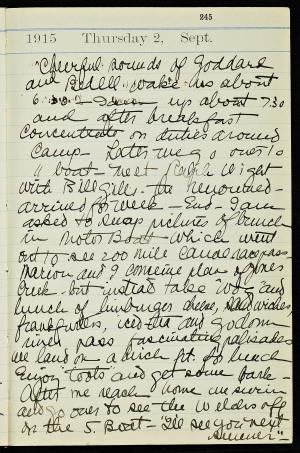 245
1915 Thursday 2, Sept.
Cheerful sounds of Goddard
and Bedell wake us about
6. up about 7.30
and after breakfast
concentrate on duties around
camp - Later we go over to
boat - meet Ralph Wight
with Bill Gills - the renowned -
arrived for week - End - I am
asked to snap pictures of bunch
in Motor Boat which went
out to see 200 mile canoe race pass
Marion and I conceive plan of
creek but instead take and
lunch of limburger cheese, sandwiches
frankfurters, iced tea and go down
river pass fascinating palisades
we land on a rich pt. for lunch
Enjoy "toots" and get some bark -
After we reach home we swim
and go over to see the Welds off
on the 5. Boat - "I'll see you next
summer" -